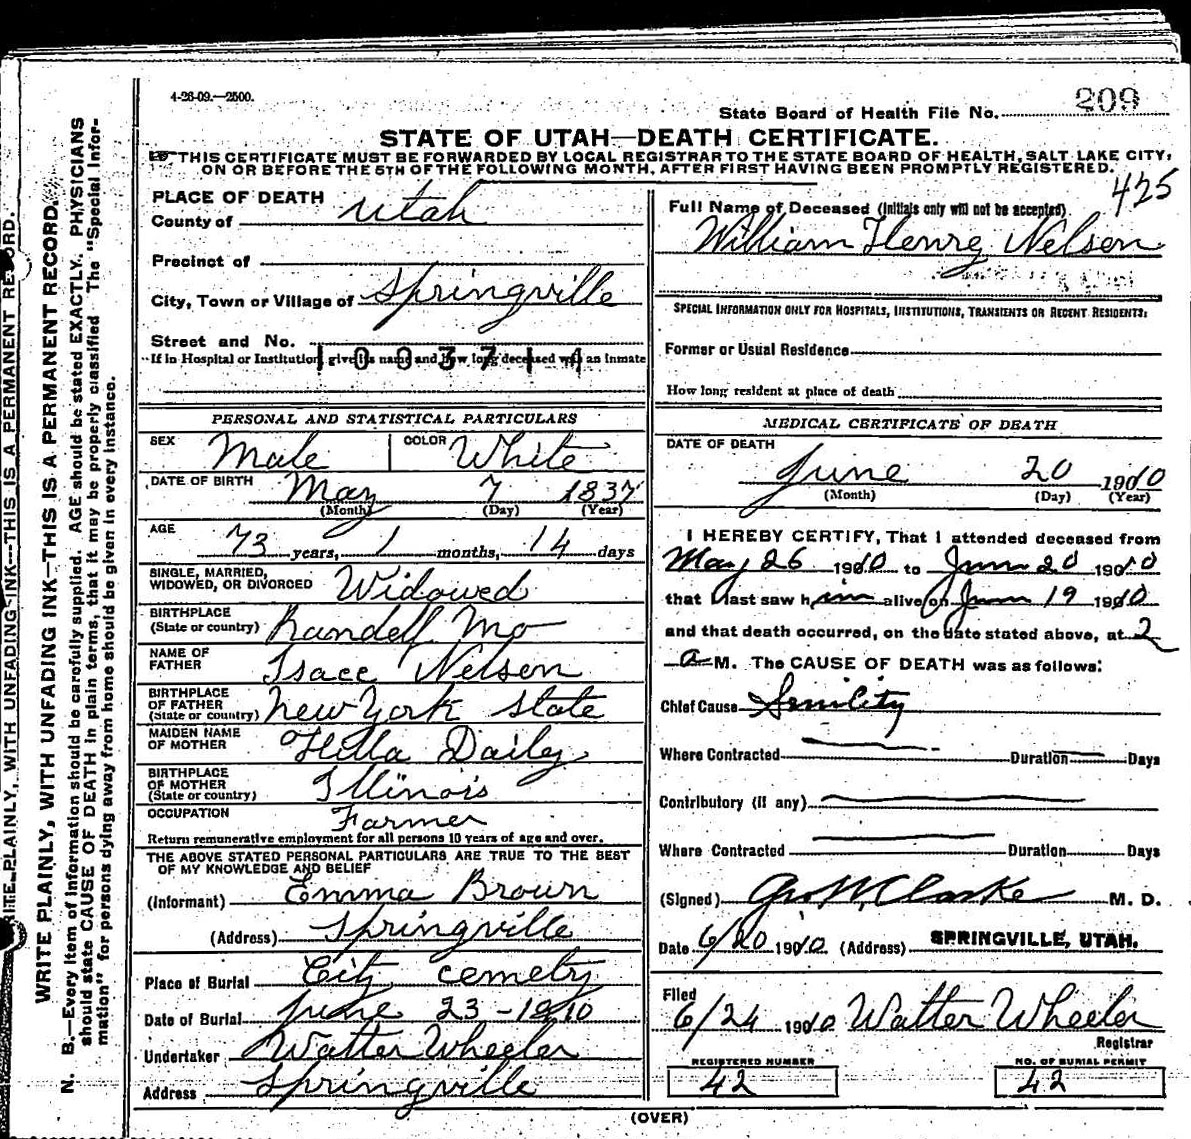 4-26-09.—2500.
State Board of Health File No. 209
STATE OF UTAH—DEATH CERTIFICATE.
THIS CERTIFICATE MUST BE FORWARDED BY LOCAL REGISTRAR TO THE STATE BOARD OF HEALTH, SALT LAKE CITY,
ON OR BEFORE THE 5TH OF THE FOLLOWING MONTH, AFTER FIRST HAVING BEEN PROMPTLY REGISTERED.
425
PLACE OF DEATH
County of Utah
Precinct of
City, Town or Village of Springville
Street and No.
If in Hospital or Institution, give its name and how long deceased was an inmate
1003714
PERSONAL AND STATISTICAL PARTICULARS
SEX Male COLOR White
DATE OF BIRTH May 7 1837
(Month) (Day) (Year)
AGE 73 years, 1 months, 14 days
SINGLE, MARRIED,
WIDOWED, OR DIVORCED Widowed
BIRTHPLACE
(State or country) Randell Mo
NAME OF
FATHER Isace Nelson
BIRTHPLACE
OF FATHER
(State or country) New York State
MAIDEN NAME
OF MOTHER Hilla Daily
BIRTHPLACE
OF MOTHER
(State or country) Illinois
OCCUPATION Farmer
Return remunerative employment for all persons 10 years of age and over.
THE ABOVE STATED PERSONAL PARTICULARS ARE TRUE TO THE BEST
OF MY KNOWLEDGE AND BELIEF
(Informant) Emma Brown
(Address) Springville
Place of Burial City cemetry
Date of Burial June 23-1910
Undertaker Walter Wheeler
Address Springville
Full Name of Deceased (Initials only will not be accepted)
William Henry Nelson
SPECIAL INFORMATION ONLY FOR HOSPITALS, INSTITUTIONS, TRANSIENTS OR RECENT RESIDENTS:
Former or Usual Residence
How long resident at place of death
MEDICAL CERTIFICATE OF DEATH
DATE OF DEATH
June 20 1910
(Month) (Day) (Year)
I HEREBY CERTIFY, That I attended deceased from
May 26 1910 to June 20 1910
that I last saw him alive on June 19 1910
and that death occurred, on the date stated above, at 2
a M. The CAUSE OF DEATH was as follows:
Chief Cause Senility
Where Contracted Duration Days
Contributory (if any)
Where Contracted Duration Days
(Signed) Geo W. Clarke M. D.
Date 6/20 1910 (Address) SPRINGVILLE, UTAH.
Filed
6/24 1910 Walter Wheeler
Registrar
REGISTERED NUMBER
42
NO. OF BURIAL PERMIT
42
(OVER)
WRITE PLAINLY, WITH UNFADING INK—THIS IS A PERMANENT RECORD.
WRITE PLAINLY, WITH UNFADING INK—THIS IS A PERMANENT RECORD.
N. B.—Every item of information should be carefully supplied. AGE should be stated EXACTLY. PHYSICIANS
should state CAUSE OF DEATH in plain terms, that it may be properly classified. The "Special Infor-
mation" for persons dying away from home should be given in every instance.